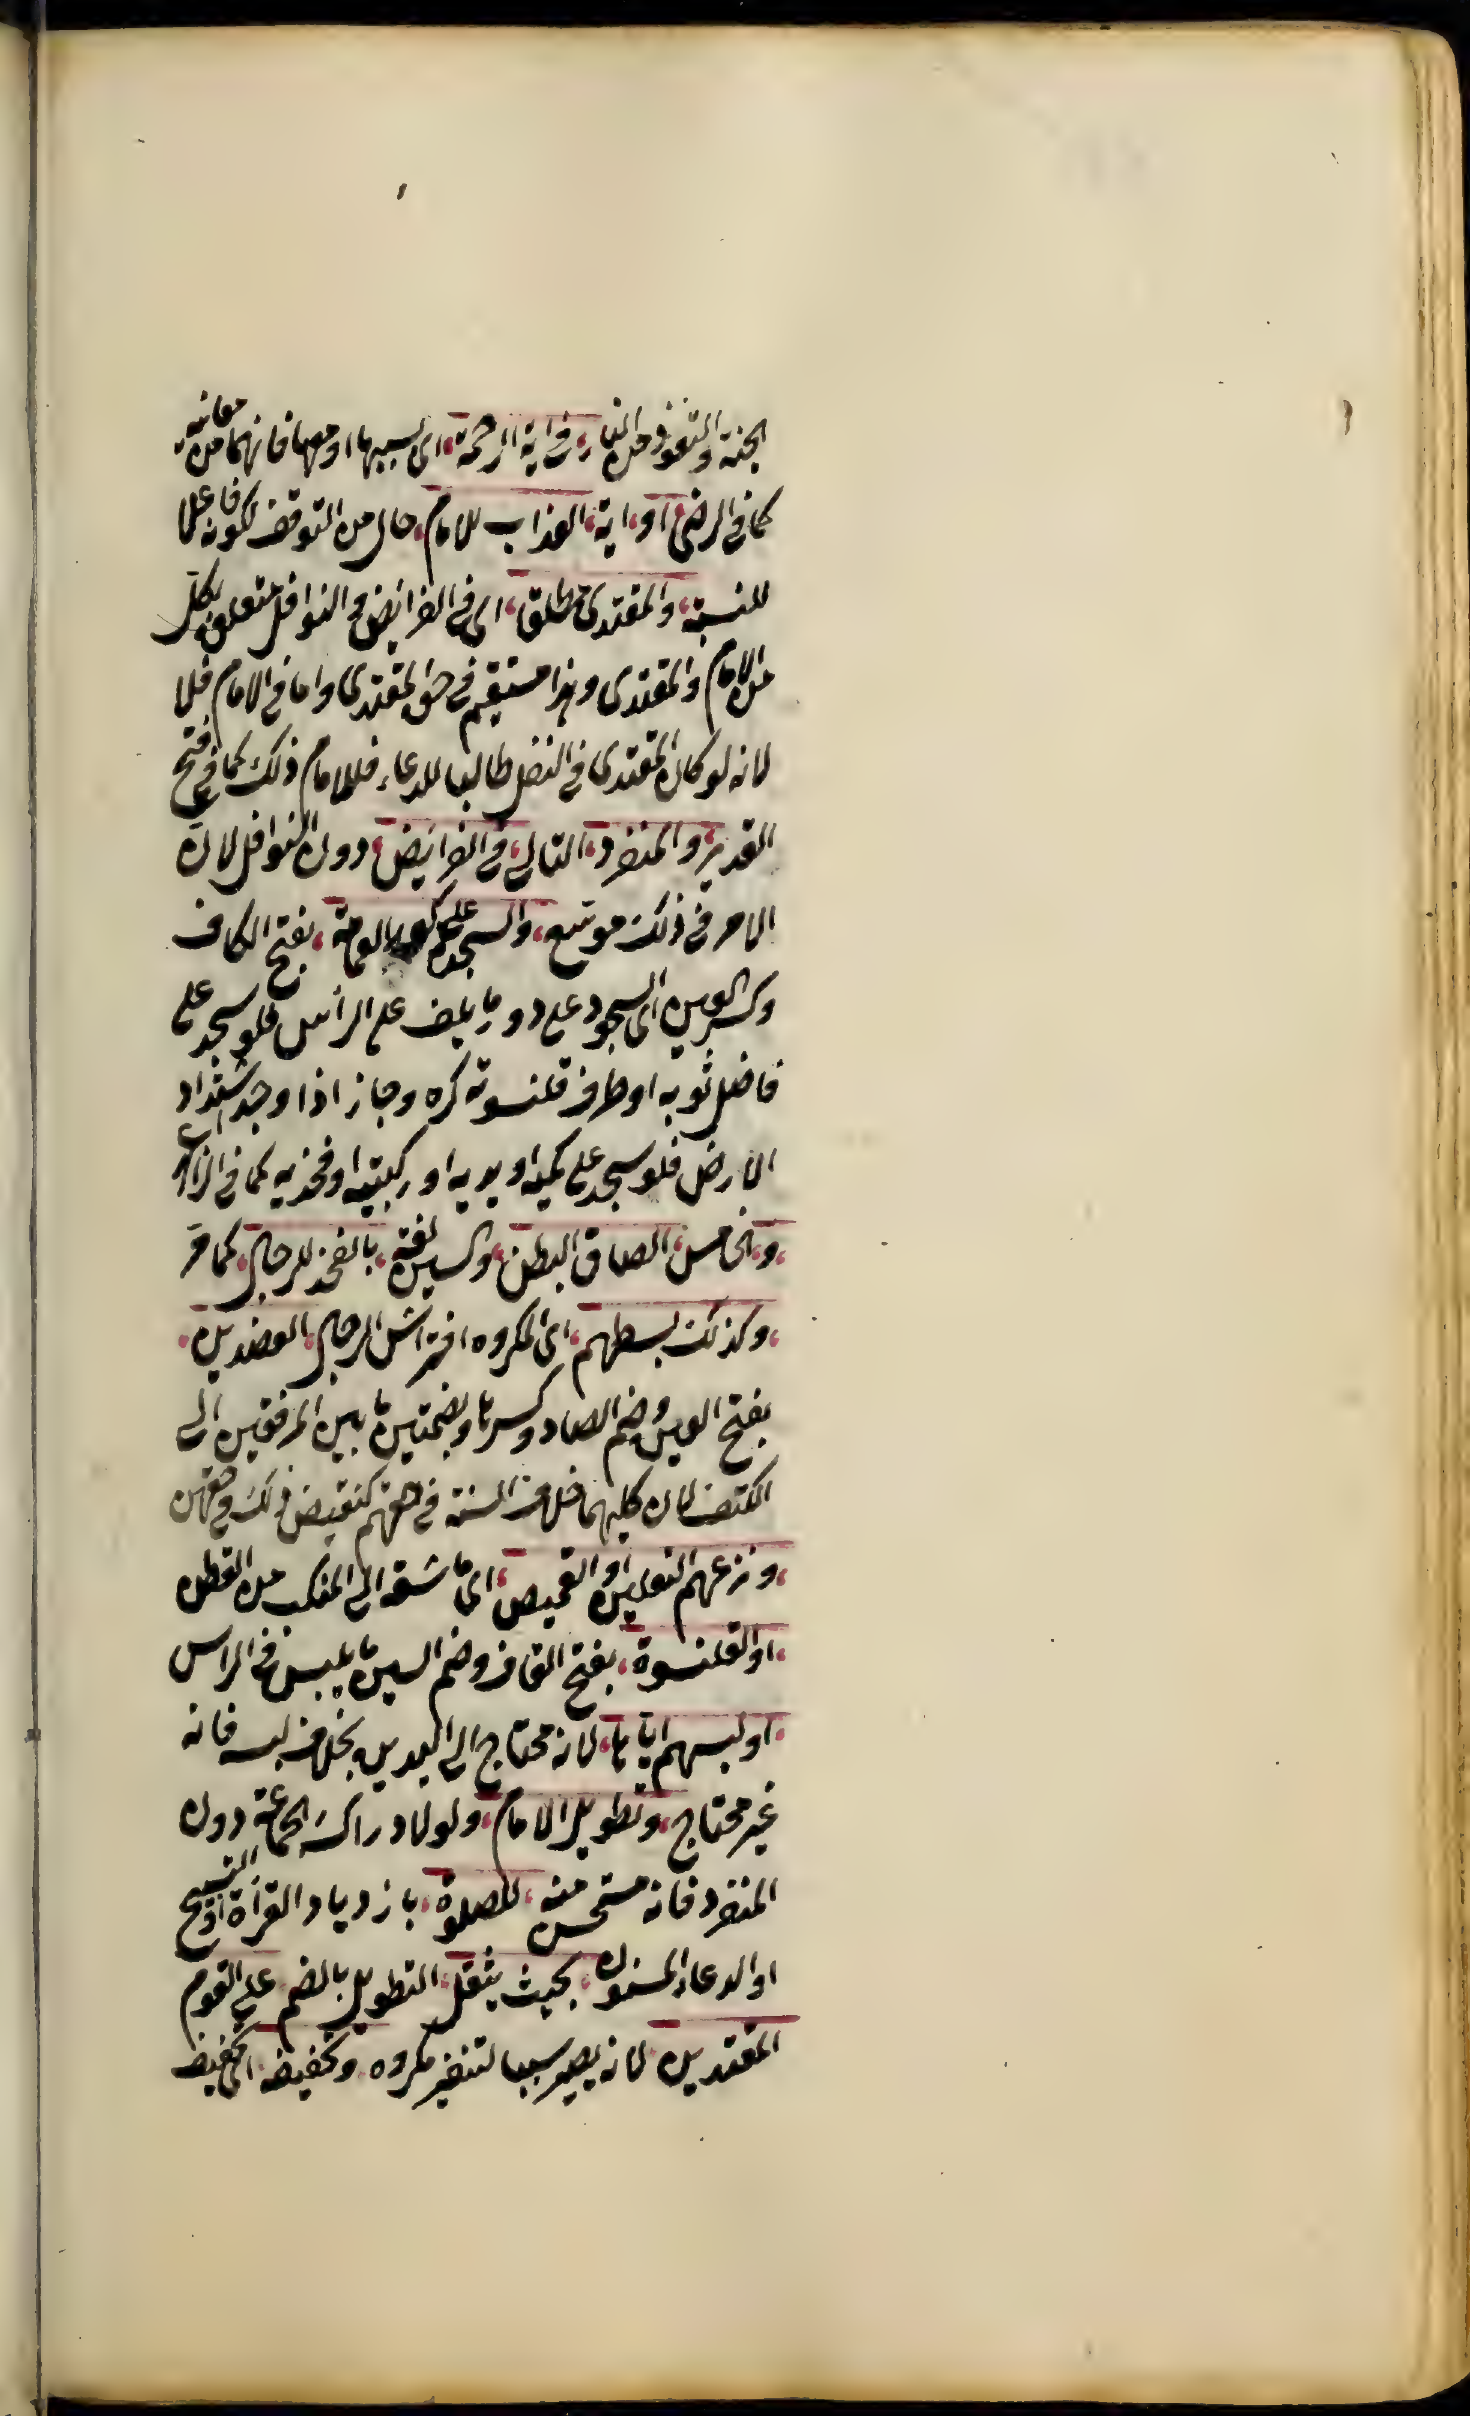 الجنة والتعوذ من النار في اية الرحمة اى بسببها او معها فانهما من معانيه
كما في الرضى او اية العذاب للامام حال من التوقف لكونه فاعلا
للنسبة والمقتدى مطلقا اى في الفرائض والنوافل متعلق بكل
من الامام والمقتدى وهذا مستقيم في حق المقتدى واما في الامام فلا
لانه لو كان المقتدى في النفل طالبا للدعاء فللامام ذلك كما في فتح
القدير والمنفرد التالي في الفرائض دون النوافل لان
الامر في ذلك موسع والسجدة على كور العمامة بفتح الكاف
وكسر العين اى السجود على دور ما يلف على الرأس فلو سجد على
فاضل ثوبه او طرف قلنسوته كره وجاز اذا وجد اشتداد
الارض فلو سجد على كميه او يديه او ركبتيه او فخذيه كما في الزاد
والخامس الصاق البطن والسين لغة بالفخذ للرجال كما مر
وكذلك بسطهم اى المكروه افتراش الرجال العضدين
بفتح العين وضم الصاد وكسرها وبضمتين ما بين المرفقين الى
الكتف لان كليهما خلاف السنة في حقهم كنقيض ذلك في حقهن
ونزعهم النعلين او القميص اى ما شقه الى المنكب من القطن
او القلنسوة بفتح القاف وضم السين ما يلبس في الراس
او لبسهم اياها لانه محتاج الى اليدين بخلاف لبسه فانه
غير محتاج وتطويل الامام ولو لادراك الجماعة دون
المنفرد فانه مستحسن منه للصلوة بازدياد القرأة او التسبيح
او الدعاء المسنون بحيث يثقل التطويل بالضم على القوم
المقتدين لانه يصير سببا لتنفير مكروه وتخفيف اى تخفيف